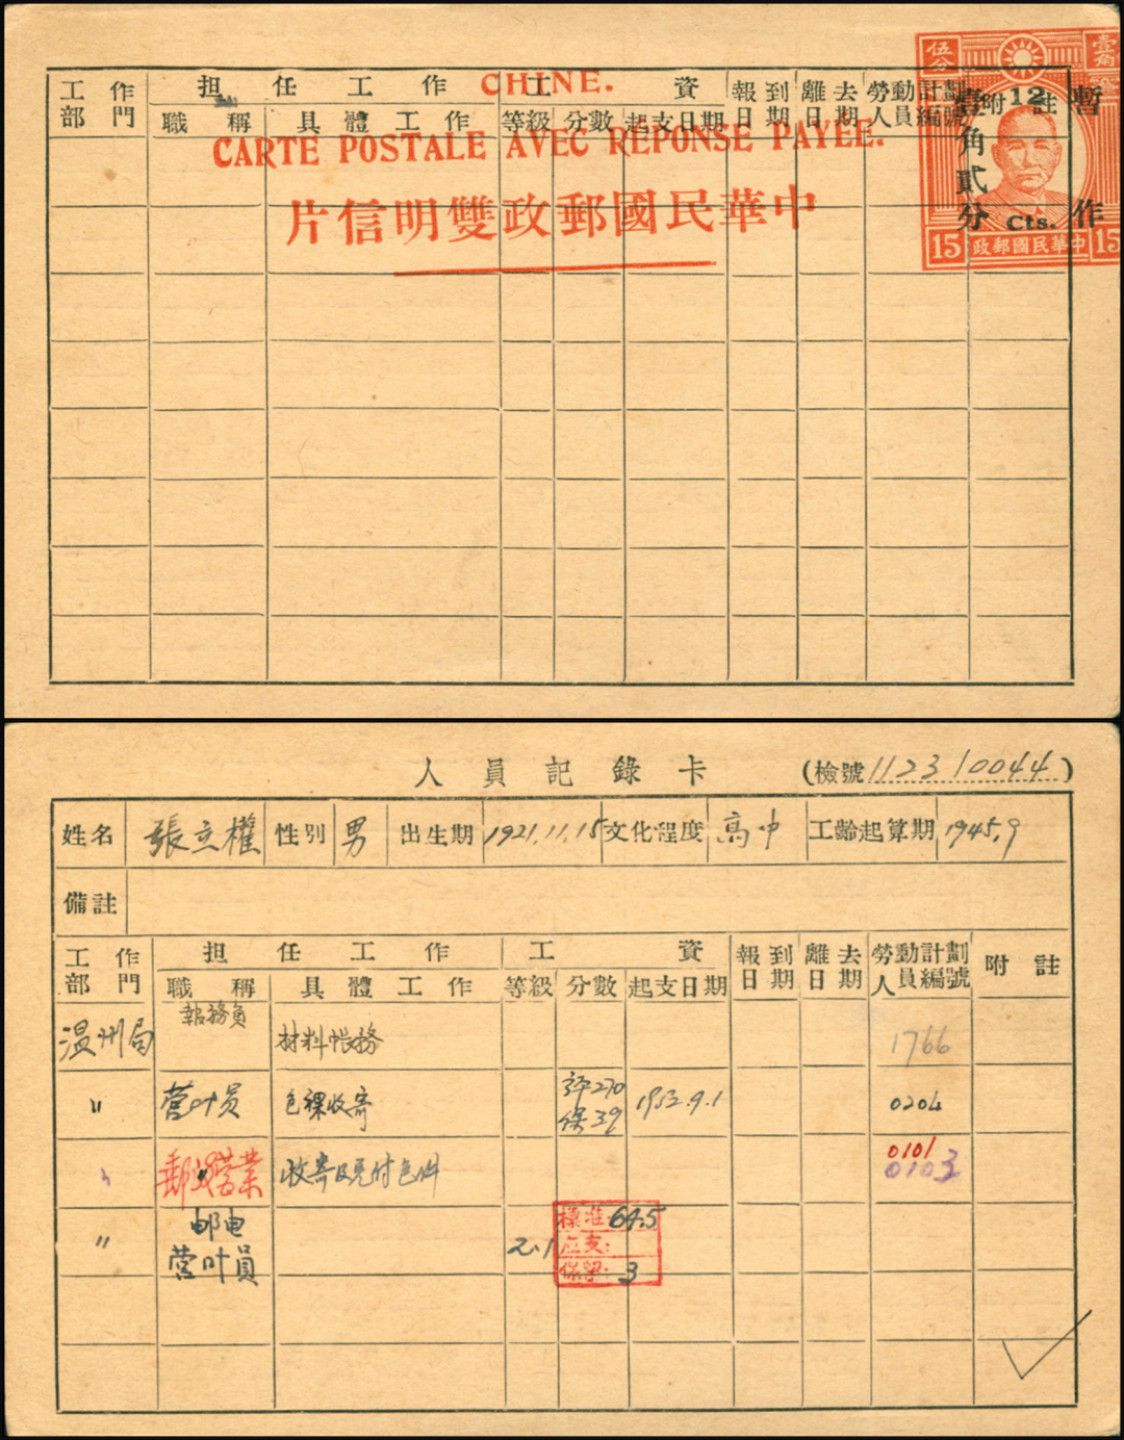 CHINE.
CARTE POSTALE AVEC RÉPONSE PAYÉE.
片信明雙政郵國民華中
伍分
壹角
暫作
12
壹角貳分
Cts.
15 政郵國民華中 15
工作部門 担任工作 工資 報到日期 離去日期 勞動計劃人員編號 附註
職稱 具體工作 等級 分數 起支日期
人員記錄卡 (檢號 112310044)
姓名 張立權 性別 男 出生期 1921.11.15 文化程度 高中 工齡起算期 1945.9
備註
工作部門 担任工作 工資 報到日期 離去日期 勞動計劃人員編號 附註
職稱 具體工作 等級 分數 起支日期
温州局 報務員 材料帐務 1766
〃 营叶员 包裸收寄 評270 保39 1952.9.1 0204
〃 郵政营業 收寄及兑付包件 0101 0103
〃 邮电营叶員 2.1 標准: 64.5
应支:
保留: 3